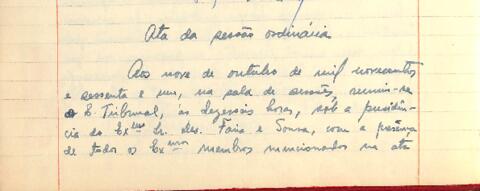 Ata da sessão ordinária
Aos nove de outubro de mil novecentos
e sessenta e um, na sala de sessões, reuniu-se
o E. Tribunal, às dezesseis horas, sob a presidên-
cia do Exmo Sr. Des. Faria e Sousa, com a presença
de todos os Exmos membros mencionados na ata